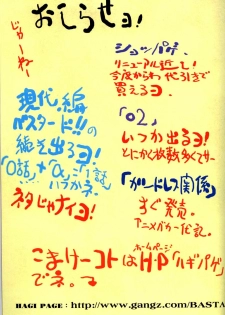 おしらせヨ!
じゃーねー
ショッパゲ、
リニューアル近し!
今度からわ代引きで
買えるヨ
現代編
バスタード!!の
続き出るヨ!
「0話」+「α」(1話)
いつかネ
ネタじゃナイヨ!
「02」
いつか出るヨ!
とにかく枚数多くてサー
「ガードレス関係」
すぐ発売。
アニメバカ一代記。
こまけーコトはH・P「ハギパゲ」
ホームページ
でネ。
HAGI PAGE : http://www.gangz.com/BASTA